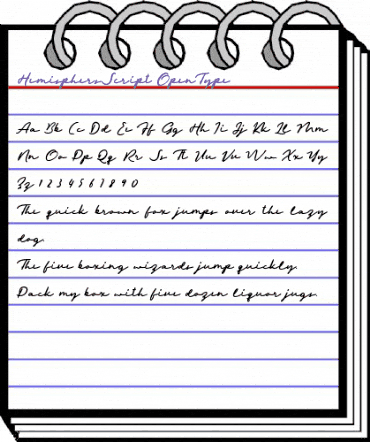 Hemisphers Script OpenType
Aa Bb Cc Dd Ee Ff Gg Hh Ii Jj Kk Ll Mm
Nn Oo Pp Qq Rr Ss Tt Uu Vv Ww Xx Yy
Zz 1 2 3 4 5 6 7 8 9 0
The quick brown fox jumps over the lazy
dog.
The five boxing wizards jump quickly.
Pack my box with five dozen liquor jugs.